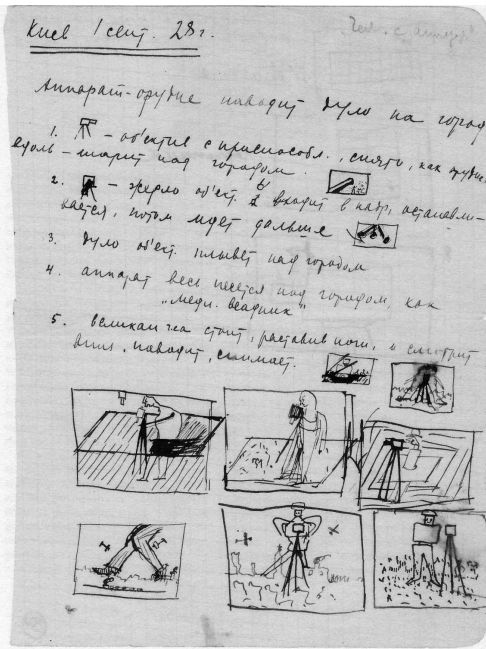 Киев 1 сент. 28 г.
Чел. с аппаратом
Аппарат-орудие наводит дуло на город
1. – об'ектив с приспособл., снято, как орудие
вдоль – шарит над городом.
2. – жерло об'ект. входит в кадр, останавли-
вается, потом идет дальше
3. дуло об'ект. плывет над городом
4. аппарат весь несется над городом, как
„медн. всадник“
5. великан на стоит, расставив ноги, и смотрит
вниз, наводит, снимает.